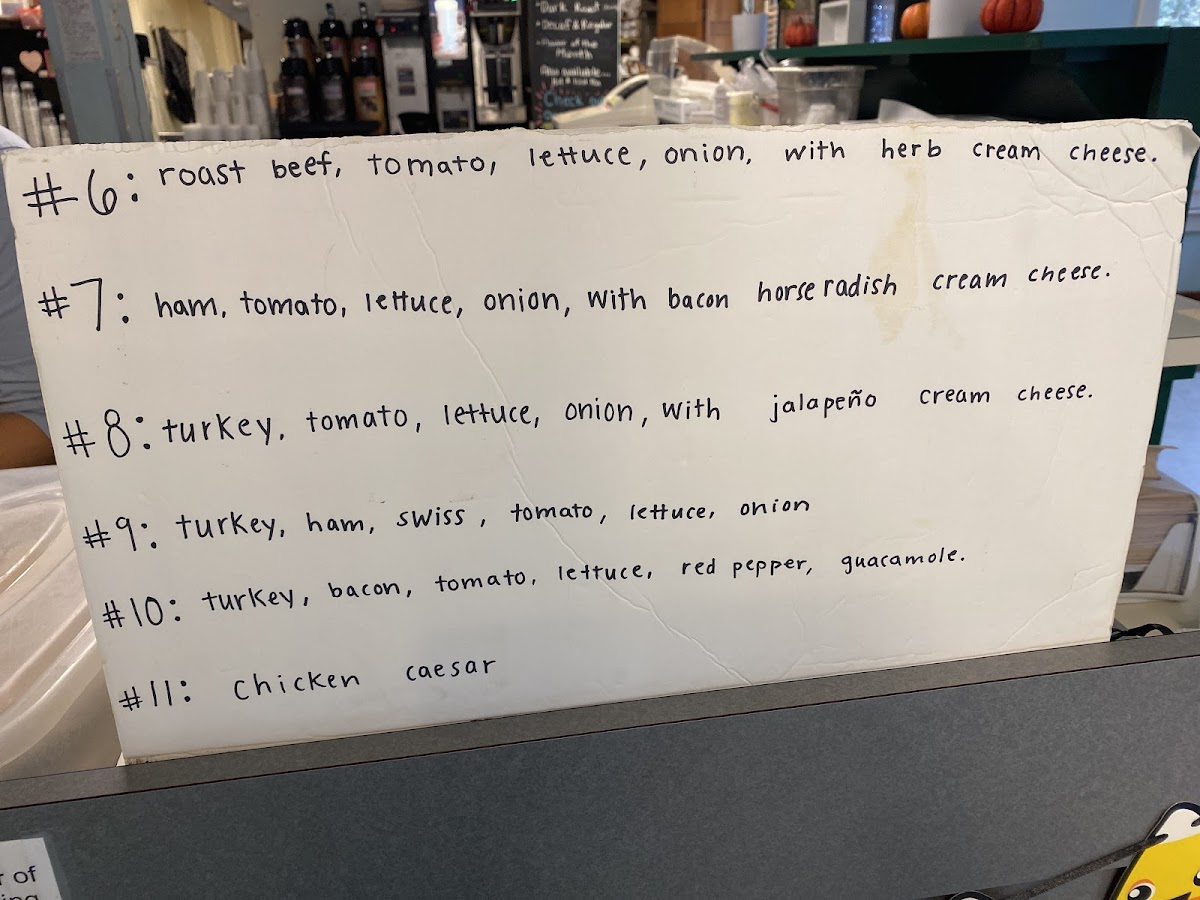 "Dark Roast
Decaf & Regular
Flavor of the
Month
Also available...
Check
#6: roast beef, tomato, lettuce, onion, with herb cream cheese.
#7: ham, tomato, lettuce, onion, with bacon horse radish cream cheese.
#8: turkey, tomato, lettuce, onion, with jalapeño cream cheese.
#9: turkey, ham, swiss, tomato, lettuce, onion
#10: turkey, bacon, tomato, lettuce, red pepper, guacamole.
#11: chicken caesar
of